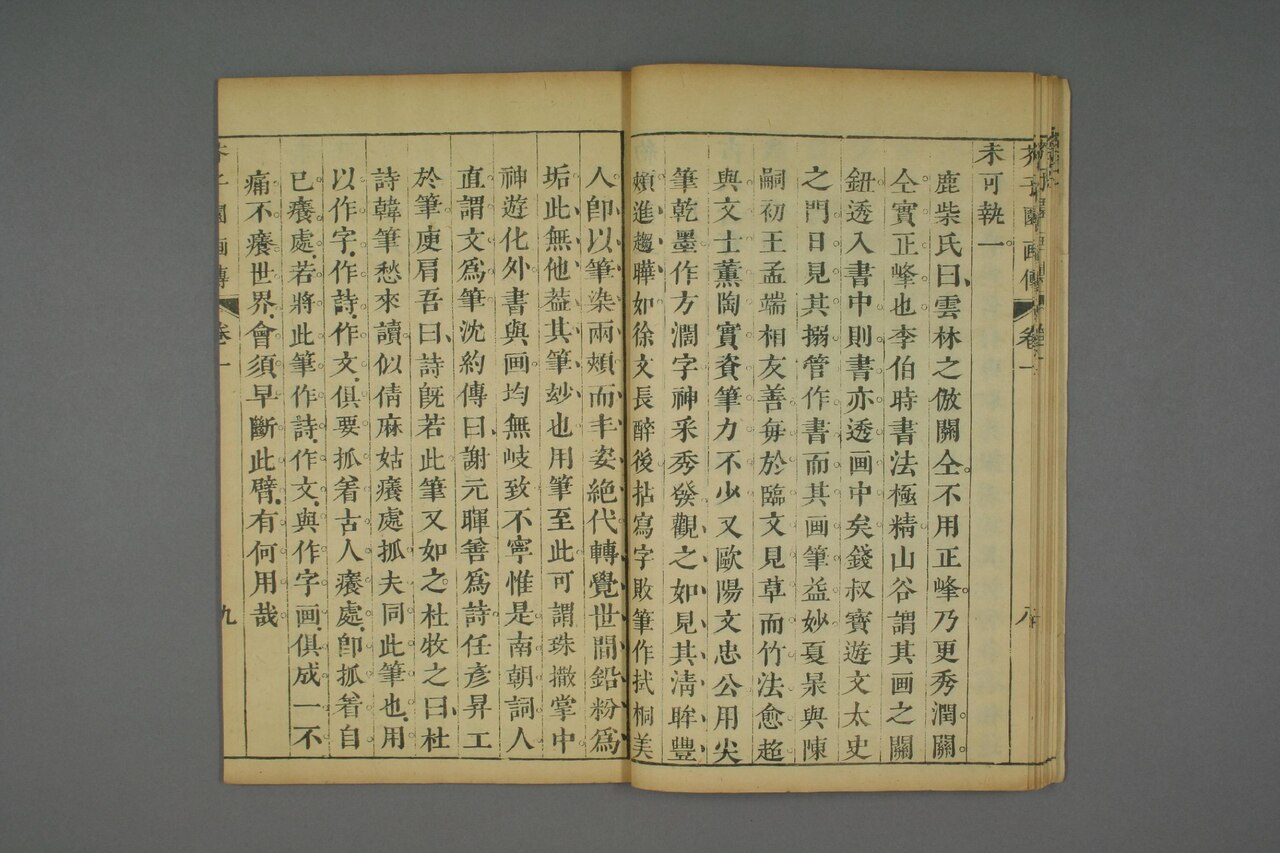 芥子園画傳
卷一
八
未可執一
鹿柴氏曰雲林之倣關仝不用正峰乃更秀潤關
仝實正峰也李伯時書法極精山谷謂其画之關
鈕透入書中則書亦透画中矣錢叔寳遊文太史
之門日見其搦管作書而其画筆益妙夏㫤與陳
嗣初王孟端相友善每於臨文見草而竹法愈超
與文士薰陶實資筆力不少又歐陽文忠公用尖
筆乾墨作方濶字神采秀發觀之如見其淸眸豐
頰進趨曄如徐文長醉後拈寫字敗筆作拭桐美
人卽以筆染兩頰而丰姿絶代轉覺世間鉛粉為
垢此無他益其筆玅也用筆至此可謂珠撒掌中
神遊化外書與画均無岐致不寧惟是南朝詞人
直謂文爲筆沈約傳曰謝元暉善爲詩任彥昇工
於筆庾肩吾曰詩旣若此筆又如之杜牧之曰杜
詩韓筆愁來讀似倩麻姑癢處抓夫同此筆也用
以作字作詩作文俱要抓着古人癢處卽抓着自
已癢處若將此筆作詩作文與作字画俱成一不
痛不癢世界會須早斷此臂有何用哉
芥子園画傳
卷一
九